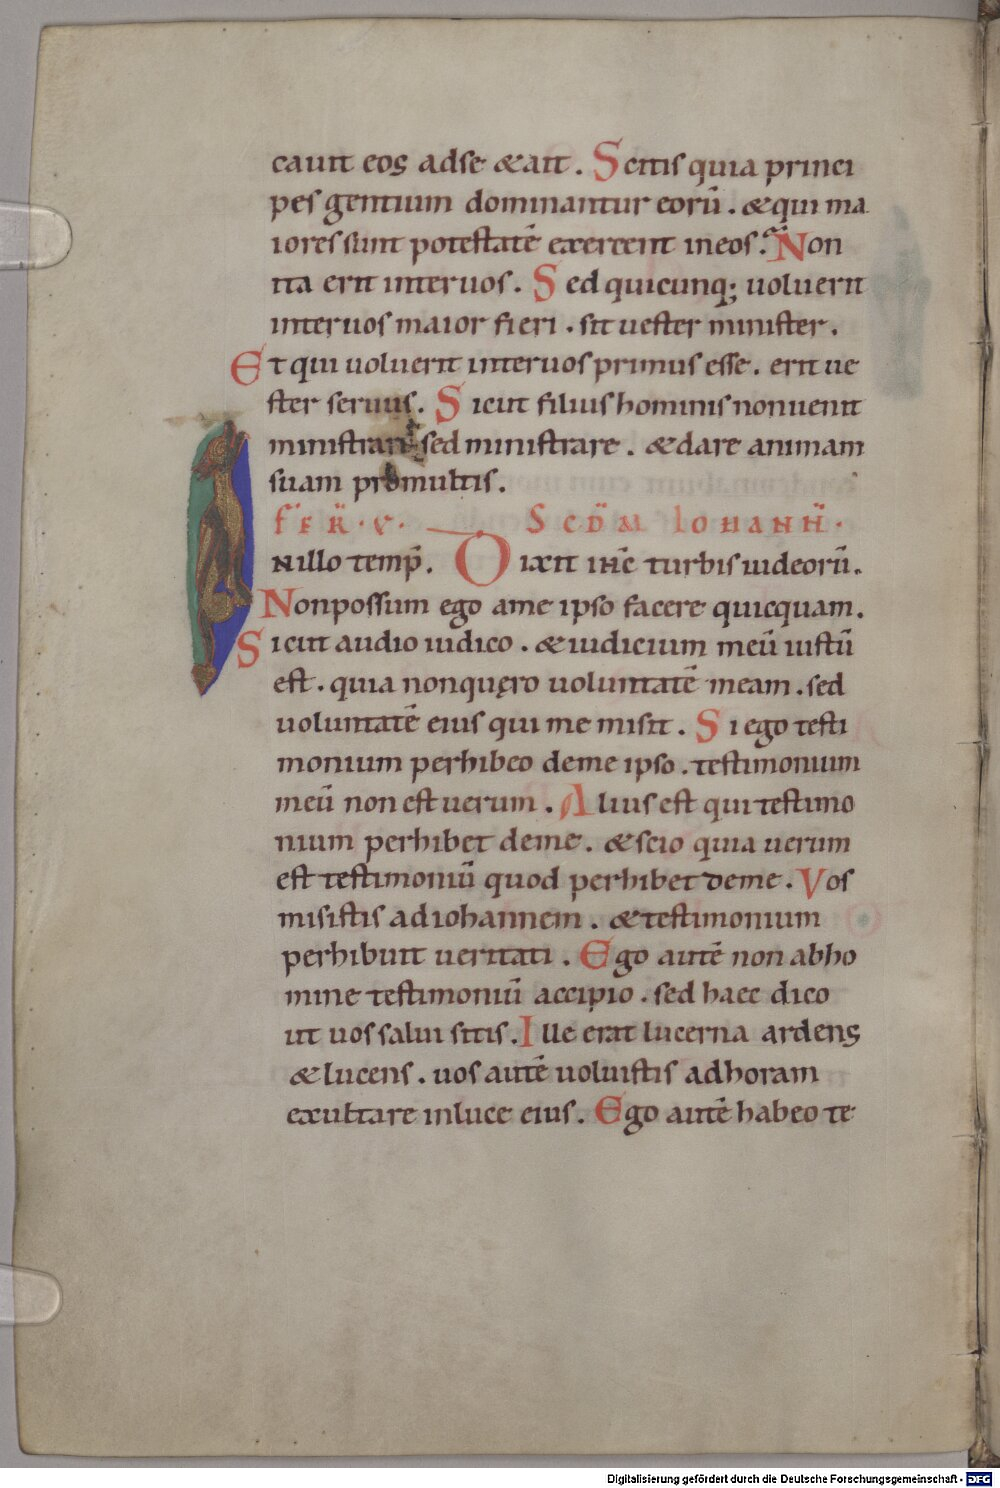 cauit eos adse &ait. Scitis quia princi
pes gentium dominantur eorū. &qui ma
iores sunt potestatē exercent ineos. Non
ita erit interuos. Sed quicunq; uoluerit
interuos maior fieri. sit uester minister.
Et qui uoluerit interuos primus esse. erit ue
ster seruus. Sicut filius hominis nonuenit
ministrari sed ministrare. &dare animam
suam promultis.
FER̄. V. SCD̄M IOHANN̄.
Nillo temp̄. Dixit ihc̄ turbis iudeorū.
Nonpossum ego ame ipso facere quicquam.
Sicut audio iudico. &iudicium meū iustū
est. quia nonquęro uoluntatē meam. sed
uoluntatē eius qui me misit. Si ego testi
monium perhibeo deme ipso. testimonium
meū non est uerum. Alius est qui testimo
nium perhibet deme. &scio quia uerum
est testimoniū quod perhibet deme. Vos
misistis adiohannem. &testimonium
perhibuit ueritati. Ego autē non abho
mine testimoniū accipio. sed haec dico
ut uos salui sitis. Ille erat lucerna ardens
&lucens. uos autē uoluistis adhoram
exultare inluce eius. Ego autē habeo te
Digitalisierung gefördert durch die Deutsche Forschungsgemeinschaft - DFG